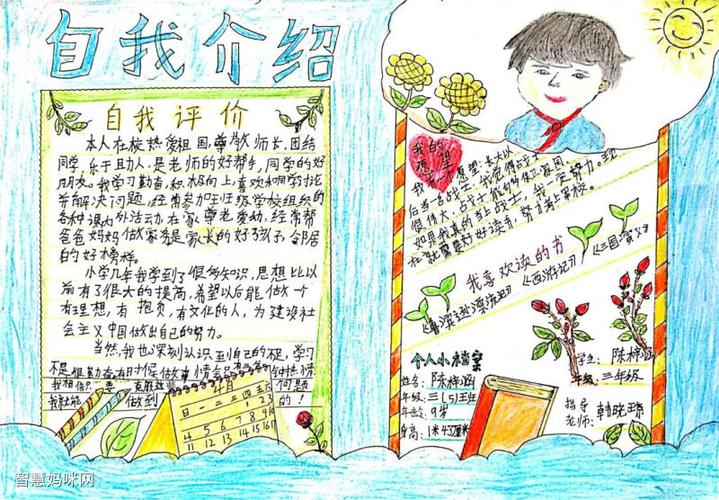 自我介绍
自我评价
本人在校热爱祖国,尊敬师长,团结
同学,乐于助人,是老师的好帮手,同学的好
朋友。我学习勤奋,积极向上,喜欢和同学讨论
并解决问题,经常参加班级学校组织的
各种课内外活动,在家尊老爱幼,经常帮
爸爸妈妈做家务是家长的好孩子,邻居
的好榜样。
小学几年我学到了很多知识,思想比以
前有了很大的提高,希望以后能做一个
有理想,有抱负,有文化的人,为建设社
会主义中国做出自己的努力。
当然,我也深刻认识到自己的不足,学习
不是很勤奋有时候做事情会
我相信只要克服这些问题
我就能做到的!
4月
日一二三四五六
1 2 3
4 5 6 7 8 9 10
11 12 13 14 15 16 17
我的愿望
后当一名战士,我觉得战士
很伟大,战士能够保卫家园,
如果我真的当上战士,我一定努力。现
在我要好好读书,努力考上军校。
我喜欢读的书
《鲁滨逊漂流记》《西游记》《三国演义》
个人小档案
姓名:陈梓涵
年级:三(5)班
年龄:9岁
身高:1米43厘米
学生:陈梓涵
年级:三年级
指导
老师:韩晓琼
智慧妈咪网